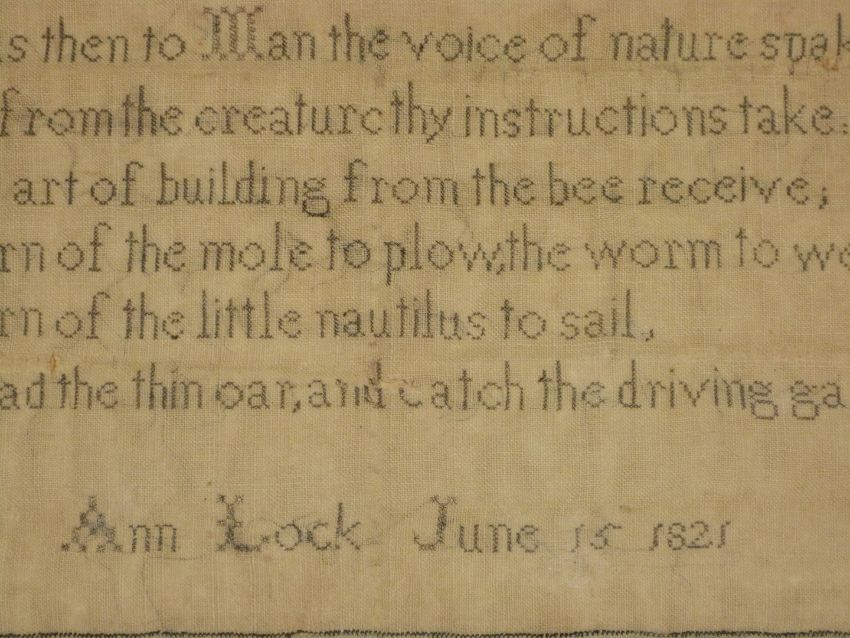 s then to Man the voice of nature spak
from the creature thy instructions take:
art of building from the bee receive;
rn of the mole to plow, the worm to we
rn of the little nautilus to sail,
ad the thin oar, and catch the driving ga
Ann Lock June 15 1821